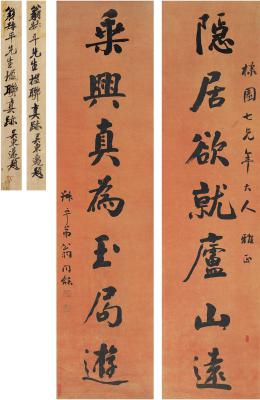 隱居欲就廬山遠
樣園七兄年大人 雅正
乘興真為玉局遊
叔平弟翁同龢
翁叔平先生楹聯真跡
翁叔平先生楹聯真跡